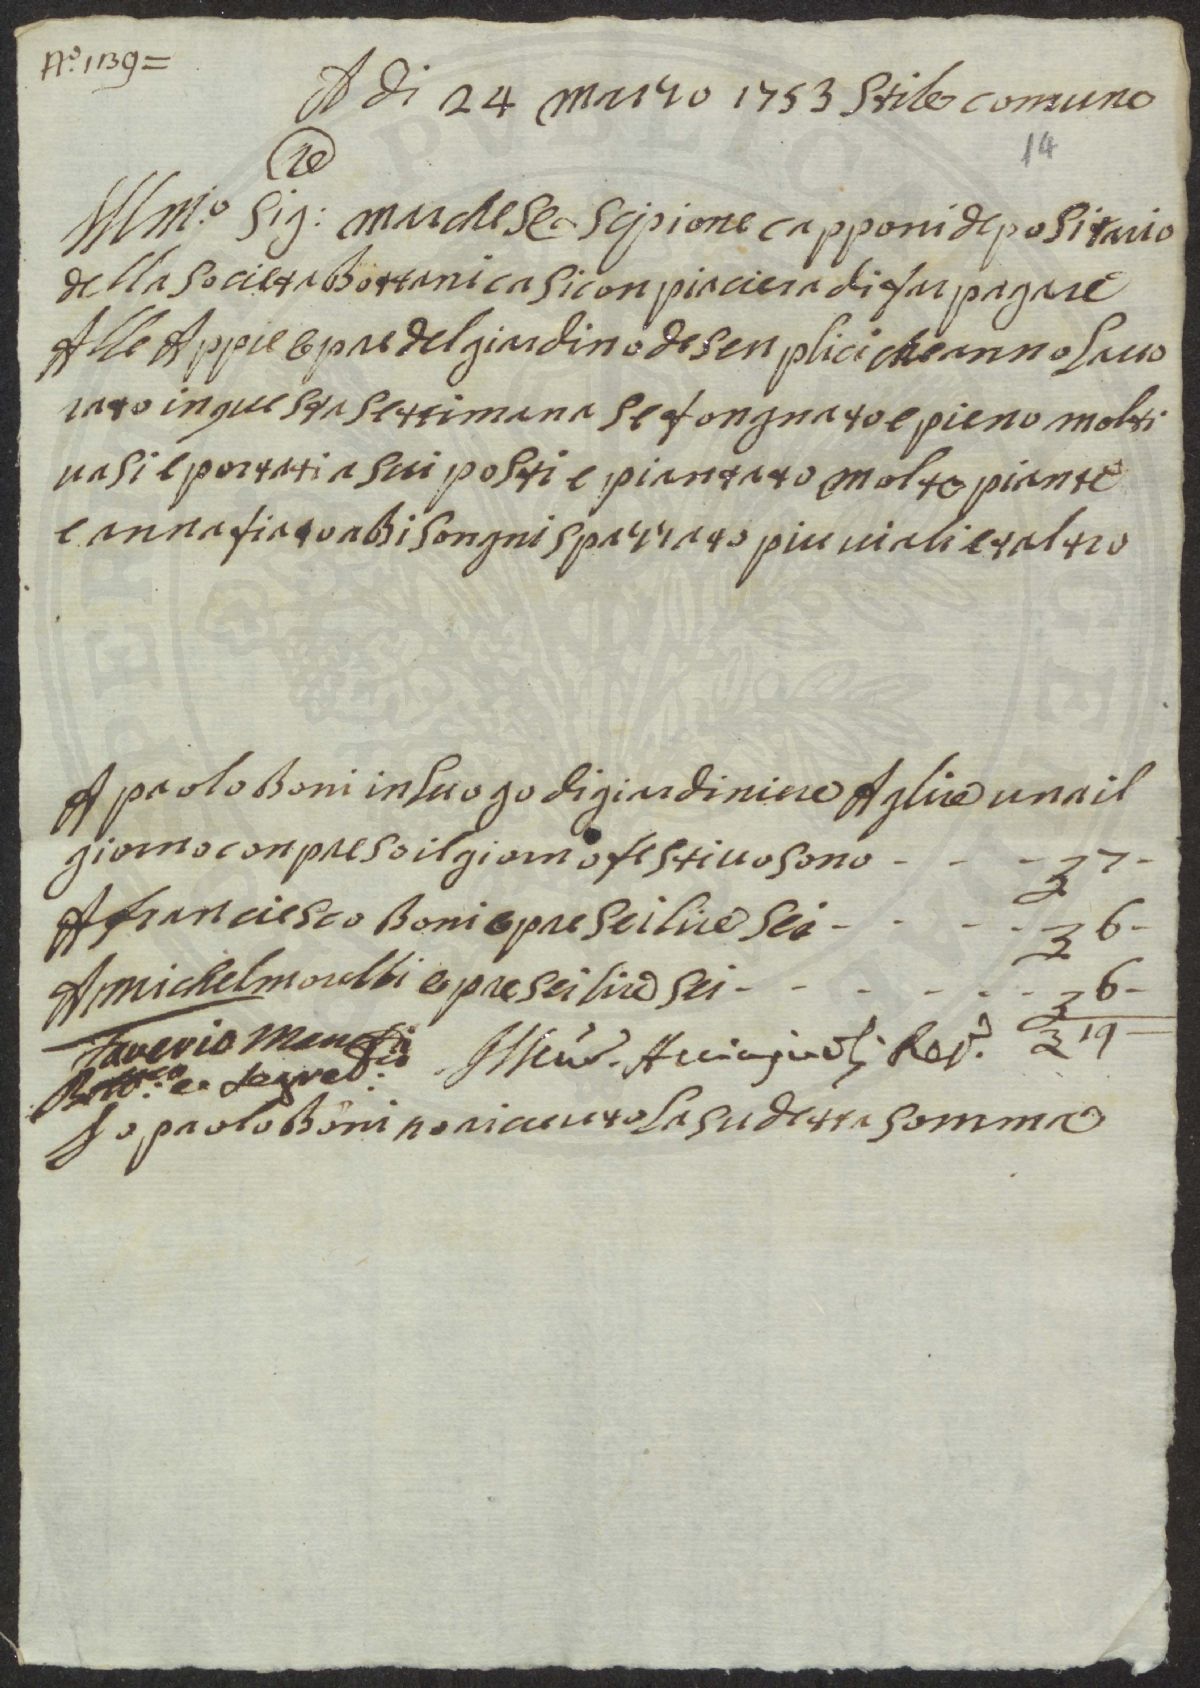 N.° 1139=
A di 24 marzo 1753 Stile comune
14
Illm.° Sig: marchese Scipione capponi depositario
della societa Bottanica si conpiaciera di far pagare
Alle Appie opre del giardino de senplici che anno lauo
rato in questa settimana se fongnato e pieno molti
uasi e portati a sui posti e piantato molte piante
e annafiato a Bisongni spazzato piu uiali et altro
A paolo Boni in luogo di giardiniere A glire una il
giorno conpreso il giorno festiuo sono - - - 7 -
A franciesco Boni opre sei lire sei - - - - 6 -
A michel morelli opre sei lire sei - - - - - - 6 -
Saverio Manetti
e Segret.rio
Rev.e 19 -
Io paolo Boni ho riceuuto la sudetta somma